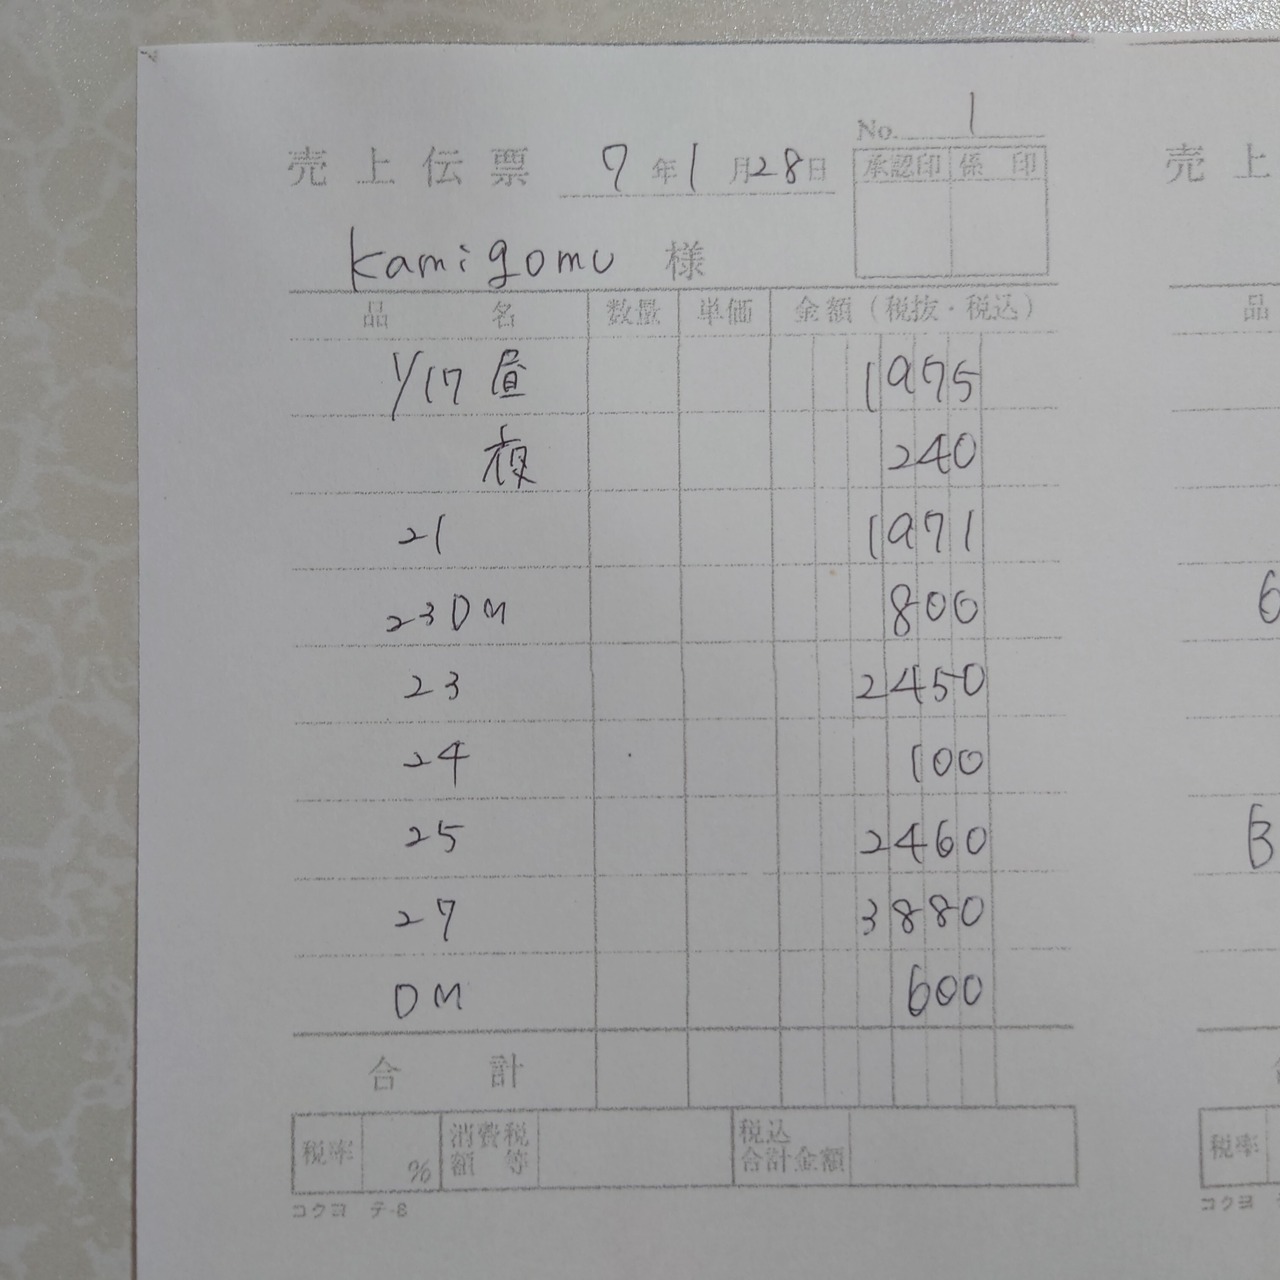 No. 1
売上伝票 7年1月28日
承認印 係印
kamigomu 様
品名 数量 単価 金額(税抜・税込)
1/17 昼 1975
夜 240
21 1971
23DM 800
23 2450
24 100
25 2460
27 3880
DM 600
合計
税率 % 消費税額等 税込合計金額
コクヨ テ-8
売上
品
6
3
税率
コクヨ